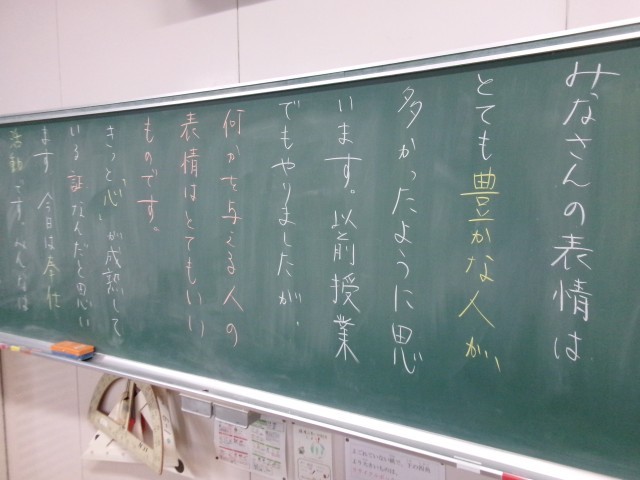 みなさんの表情は
とても豊かな人が、
多かったように思
います。以前授業
でもやりましたが、
何かを与える人の
表情はとてもいい
ものです。
きっと「心」が成認して
いる証なんだと思い
ます 今日は奉仕
活動です。みんなは